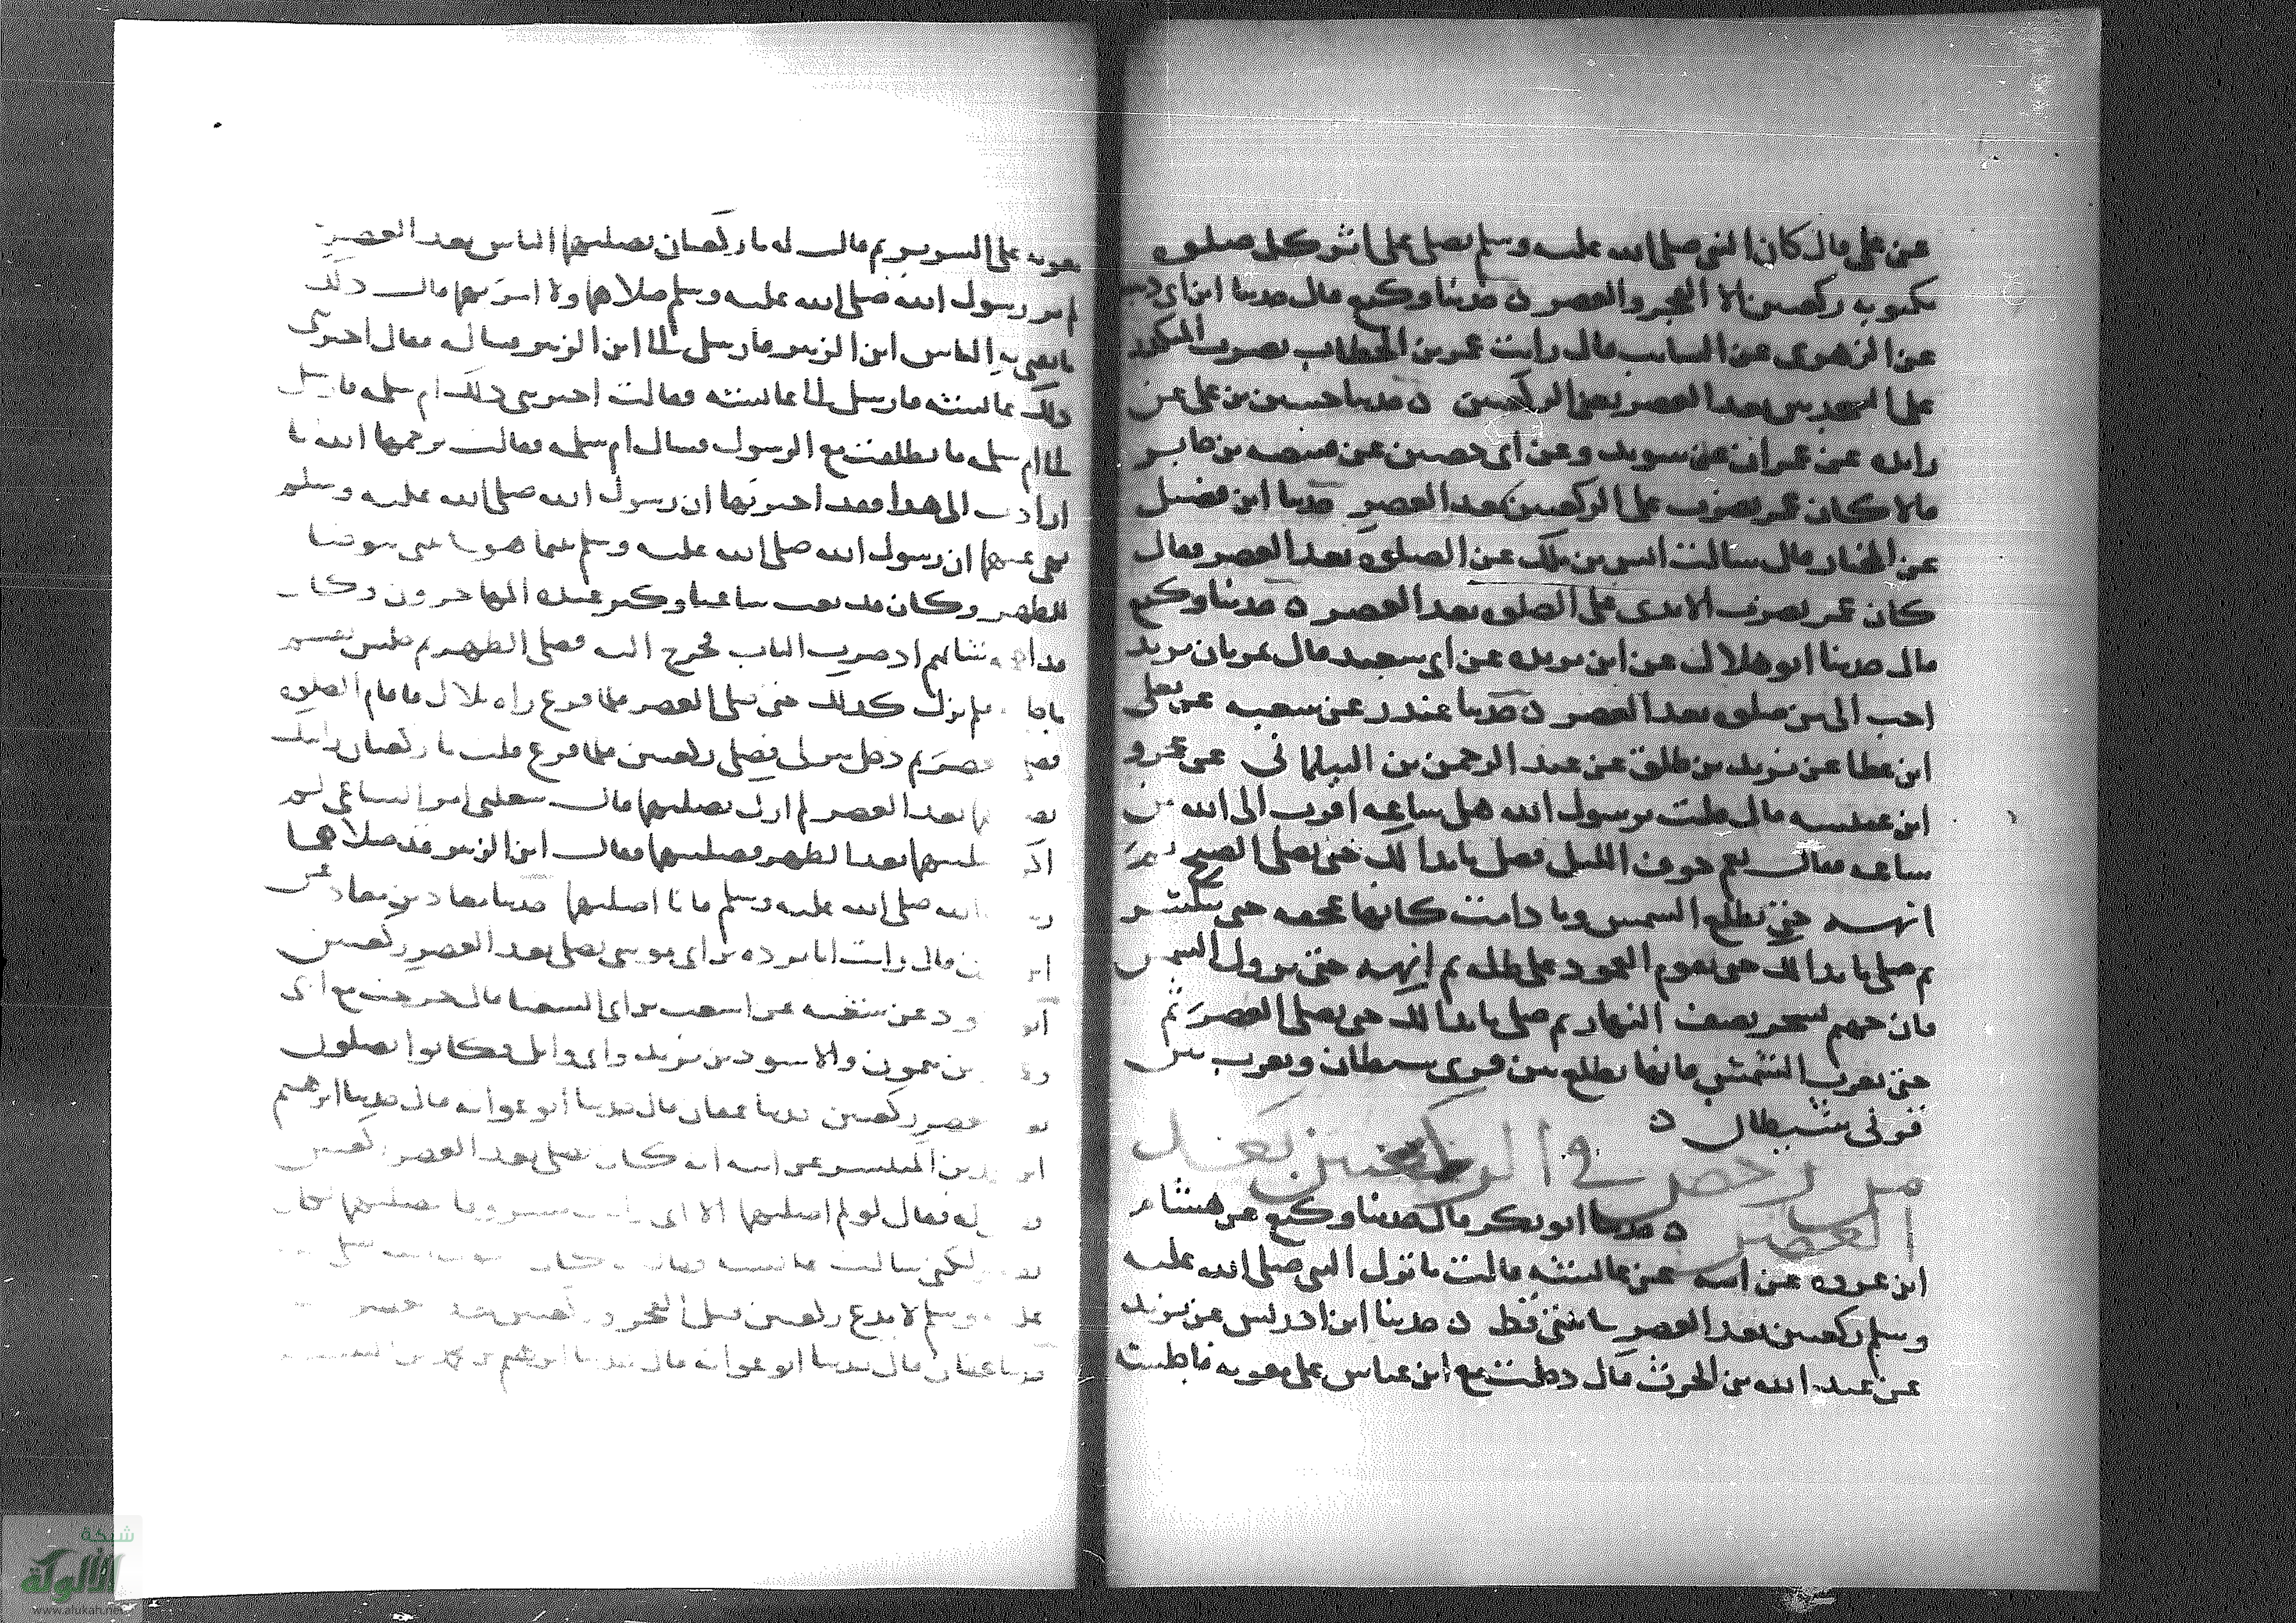 عن علي قال كان النبي صلى الله عليه وسلم يصلي على اثر كل صلوة
مكتوبه ركعتين الا الفجر والعصر ه حدثنا وكيع قال حدثنا ابن ابي ذيب
عن الزهري عن السايب قال رايت عمر بن الخطاب يضرب المنكدر
على السجدتين بعد العصر يعني الركعتين ه حدثنا حسين بن علي عن
زايده عن عمران عن سويد وعن ابي حصين عن قبيصه بن جابر
قالا كان عمر يضرب على الركعتين بعد العصر حدثنا ابن فضيل
عن المختار قال سالت انس بن ملك عن الصلوه بعد العصر فقال
كان عمر يضرب الايدي على الصلوه بعد العصر ه حدثنا وكيع
قال حدثنا ابو هلال عن ابن بريده عن ابي سعيد قال تمرتان بزبد
احب الي من صلوه بعد العصر ه حدثنا غندر عن شعبه عن يعلى
ابن عطا عن يزيد بن طلق عن عبد الرحمن بن البيلماني عن عمرو
ابن عبسه قال قلت يرسول الله هل ساعه اقرب الى الله من
ساعه فقال نعم جوف الليل فصل ما بدا لك حتى تصلي الصبح ثم
انهه حتى تطلع الشمس وما دامت كانها حجفه حتى تنتشر
ثم صلي ما بدا لك حتى يقوم العمود على ظله ثم انهه حتى تزول الشمس
فان جهنم تسجر نصف النهار ثم صلي ما بدا لك حتى تصلي العصر ثم
حتى تغرب الشمس فانها تطلع بين قرني شيطان وتغرب بين
قرني شيطان ه
من رخص في الركعتين بعد
العصر ه حدثنا ابو بكر قال حدثنا وكيع عن هشام
ابن عروه عن ابيه عن عائشه قالت ما ترك النبي صلى الله عليه
وسلم ركعتين بعد العصر في بيتي قط ه حدثنا ابن ادريس عن يزيد
عن عبد الله بن الحرث قال دخلت مع ابن عباس على معويه فاجلسه
معويه على السرير ثم قال له ما ركعتان يصليهما الناس بعد العصر
لم نر رسول الله صلى الله عليه وسلم صلاهما ولا امر بهما قال ذلك
ما يفتي به الناس ابن الزبير فارسل الى ابن الزبير فساله فقال اخبرتني
ذلك عائشه فارسل الى عائشه فقالت اخبرتني ذلك ام سلمه فارسل
الى ام سلمه فانطلقت مع الرسول فسال ام سلمه فقالت يرحمها الله ما
ارادت الى هذا فقد اخبرتها ان رسول الله صلى الله عليه وسلم
نهى عنهما ان رسول الله صلى الله عليه وسلم بينما هو في بيتي يتوضا
للظهر وكان قد بعث ساعيا وكثر عنده المهاجرون وكان
قد اهمه شانهم اذ ضرب الباب فخرج اليه فصلى الظهر ثم جلس يقسم
ما جا فلم يزل كذلك حتى صلى العصر فلما فرغ راه بلال فاقام الصلوه
العصر ثم دخل منزلي فصلى ركعتين فلما فرغ قلت ما ركعتان رايتك
بعد العصر لم ارك تصليهما قال شغلني امر الساعي لم
اكن صليتهما بعد الظهر فصليتهما فقال ابن الزبير قد صلاهما
الله صلى الله عليه وسلم فانا اصليهما حدثنا معاذ بن معاذ عن
قال رايت ابا برده بن ابي موسى يصلي بعد العصر ركعتين
عن شعبه عن اشعث بن ابي الشعثا قال خرجت مع ابي
بن ميمون والاسود بن يزيد وابي وايل فكانوا يصلون
العصر ركعتين حدثنا عفان قال حدثنا ابو عوانه قال حدثنا ابرهيم
بن المنتشر عن ابيه انه كان يصلي بعد العصر ركعتين
له فقال لو لم اصليهما الا اني
ولكني سالت عائشه
وسلم لا يدع ركعتين قبل الفجر وركعتين بعد العصر
حدثنا عفان قال حدثنا ابو عوانه قال حدثنا
شبكة
الألوكة
www.alukah.net